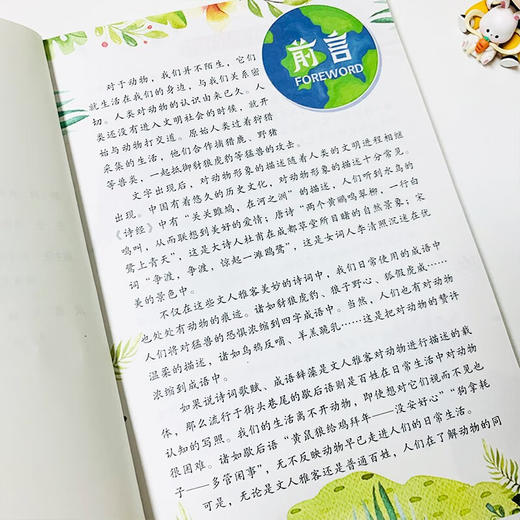 前言
FOREWORD
对于动物,我们并不陌生,它们
就生活在我们的身边,与我们关系密
切。人类对动物的认识由来已久。人
类还没有进入文明社会的时候,就开
始与动物打交道。原始人类过着狩猎
采集的生活,他们合作捕猎鹿、野猪
等兽类,一起抵御豺狼虎豹等猛兽的攻击。
文字出现后,对动物形象的描述随着人类的文明进程相继
出现。中国有着悠久的历史文化,对动物形象的描写十分常见。
《诗经》中有“关关雎鸠,在河之洲”的描述,人们听到水鸟的
鸣叫,从而联想到美好的爱情;唐诗“两个黄鹂鸣翠柳,一行白
鹭上青天”,这是大诗人杜甫在成都草堂所目睹的自然景象;宋
词“争渡,争渡,惊起一滩鸥鹭”,这是女词人李清照沉迷在优
美的景色中。
不仅在这些文人雅客美妙的诗词中,我们日常使用的成语中
也处处有动物的痕迹。诸如豺狼虎豹、狼子野心、狐假虎威……
人们将对猛兽的恐惧浓缩到四字成语中。当然,人们也有对动物
温柔的描述,诸如乌鸦反哺、羊羔跪乳……这是把对动物的赞许
浓缩到成语中。
如果说诗词歌赋、成语辞藻是文人雅客对动物进行描述的载
体,那么流行于街头巷尾的歇后语则是百姓在日常生活中对动物
认知的写照。我们的生活离不开动物,即使想对它们视而不见也
很困难。诸如歇后语“黄鼠狼给鸡拜年——没安好心”“狗拿耗
子——多管闲事”,无不反映动物早已走进人们的日常生活。
可是,无论是文人雅客还是普通百姓,人们在了解动物的同